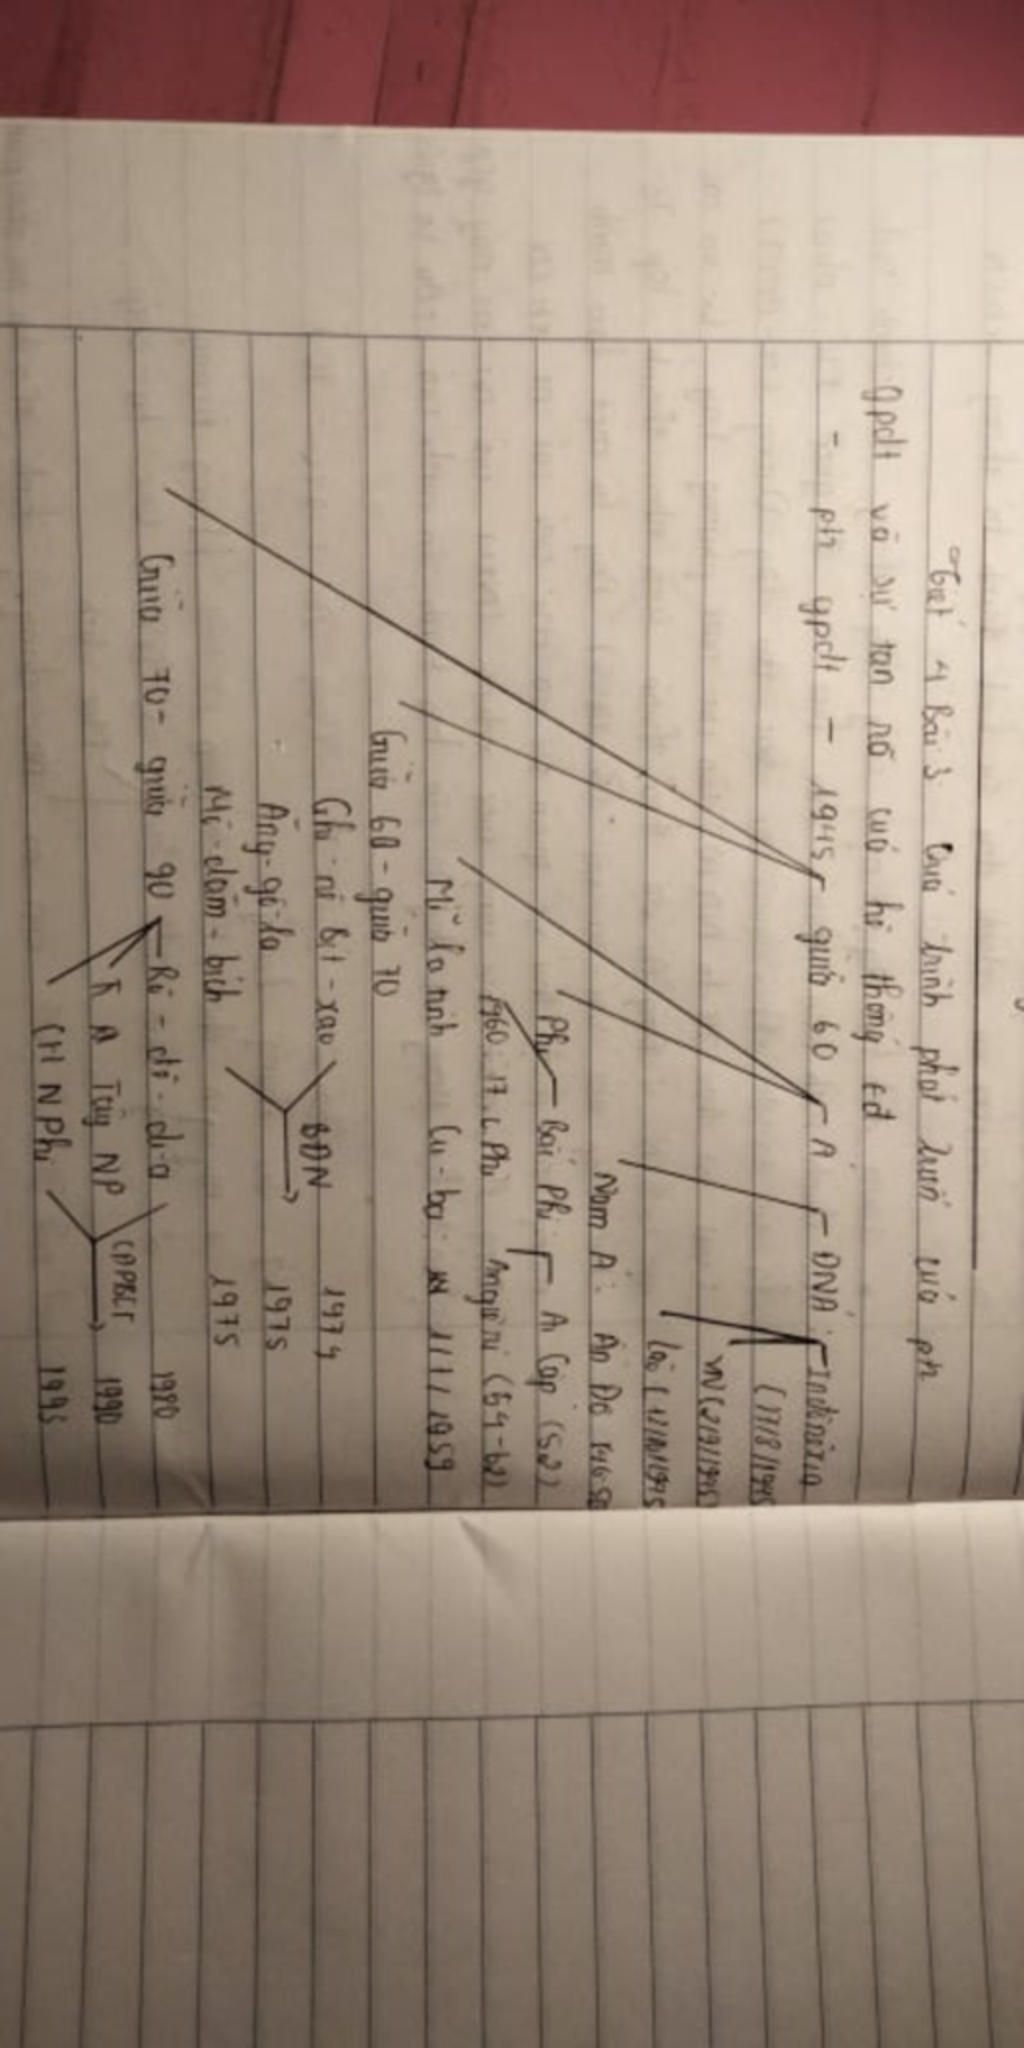 Tiết 4 Bài 3 Quá trình phát triển của ptr
gpdt và sự tan rã của hệ thống tđ
- ptr gpdt - 1945 giữa 60 Á ĐNÁ: Inđônêxia
(17/8/1945
VN (2/9/1945)
Lào (12/10/1945
Nam Á: Ấn Độ 1946-50
Phi Bắc Phi Ai Cập (52)
1960: 17.c.Phi Angiêri (54-62)
Mĩ la tinh Cu-ba: 1/1/1959
Giữa 60 - giữa 70
Ghi-nê Bít-xao BĐN 1974
Ăng-gô-la 1975
Mô-dăm-bích 1975
Giữa 70 - giữa 90 Rô-đê-di-a 1980
Tây NP CĐPBCT 1990
CH N Phi 1995